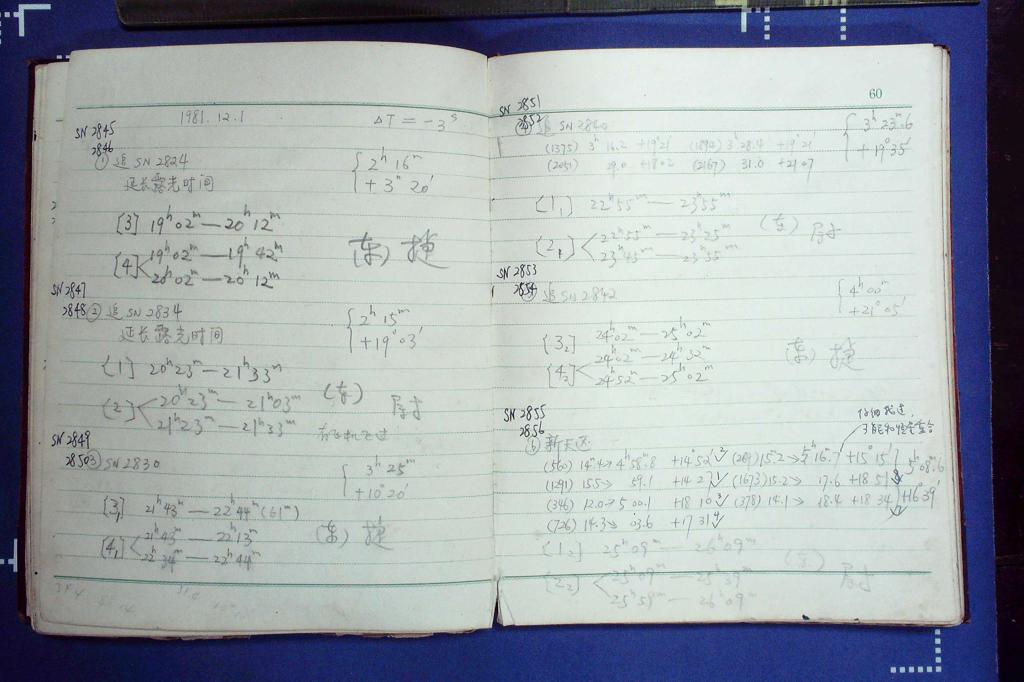 1981.12.1 ΔT = -3ˢ
SN 2845
2846
① 追 SN 2824
延长露光时间
{2ʰ 16ᵐ
+ 3° 20′
[3] 19ʰ02ᵐ — 20ʰ12ᵐ
[4] < 19ʰ02ᵐ — 19ʰ42ᵐ
20ʰ02ᵐ — 20ʰ12ᵐ
(东) 捷
SN 2847
2848 ② 追 SN 2834
延长露光时间
{2ʰ 15ᵐ
+19° 03′
[1] 20ʰ23ᵐ — 21ʰ33ᵐ
[2] < 20ʰ23ᵐ — 21ʰ03ᵐ
21ʰ23ᵐ — 21ʰ33ᵐ
(东)
SN 2849
2850 ③ SN 2830
{3ʰ 25ᵐ
+10° 20′
[3₁] 21ʰ43ᵐ — 22ʰ44ᵐ (61ᵐ)
[4₁] < 21ʰ43ᵐ — 22ʰ13ᵐ
22ʰ34ᵐ — 22ʰ44ᵐ
(东) 捷
60
SN 2851
2852
④ 追 SN 2840
{3ʰ 23ᵐ.6
+19° 35′
(1375) 3ʰ 16.2 +19°21′ (1894) 3ʰ 28.4 +19°21′
(2051) 29.0 +18 02 (2167) 31.0 +21 07
[1₁] 22ʰ55ᵐ — 23ʰ55ᵐ
[2₁] < 22ʰ55ᵐ — 23ʰ25ᵐ
23ʰ45ᵐ — 23ʰ55ᵐ
(东)
SN 2853
2854
⑤ 追 SN 2842
{4ʰ 00ᵐ
+21° 05′
[3₂] 24ʰ02ᵐ — 25ʰ02ᵐ
[4₂] < 24ʰ02ᵐ — 24ʰ32ᵐ
24ʰ52ᵐ — 25ʰ02ᵐ
(东) 捷
SN 2855
2856
仔细找过,
可能和恒星重合
⑥ 新天区
(560) 14ᵐ.4→ 4ʰ58ᵐ.8 +14°52′ (209) 15.2→ 5ʰ 16ᵐ.7 +15°15′
(1291) 15.5→ 59.1 +14 21 (1673) 15.2→ 17.6 +18 51
(346) 12.0→ 5 00.1 +18 10 (378) 14.1→ 18.4 +18 34
(726) 14.3→ 03.6 +17 31
{5ʰ 08ᵐ.6
+16° 39′
[1₂] 25ʰ09ᵐ — 26ʰ09ᵐ
[2₂] < 25ʰ09ᵐ — 25ʰ39ᵐ
25ʰ59ᵐ — 26ʰ09ᵐ
(东)